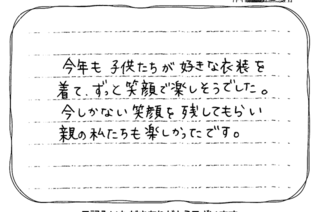 今年も子供たちが好きな衣装を
着て、ずっと笑顔で楽しそうでした。
今しかない笑顔を残してもらい
親の私たちも楽しかったです。